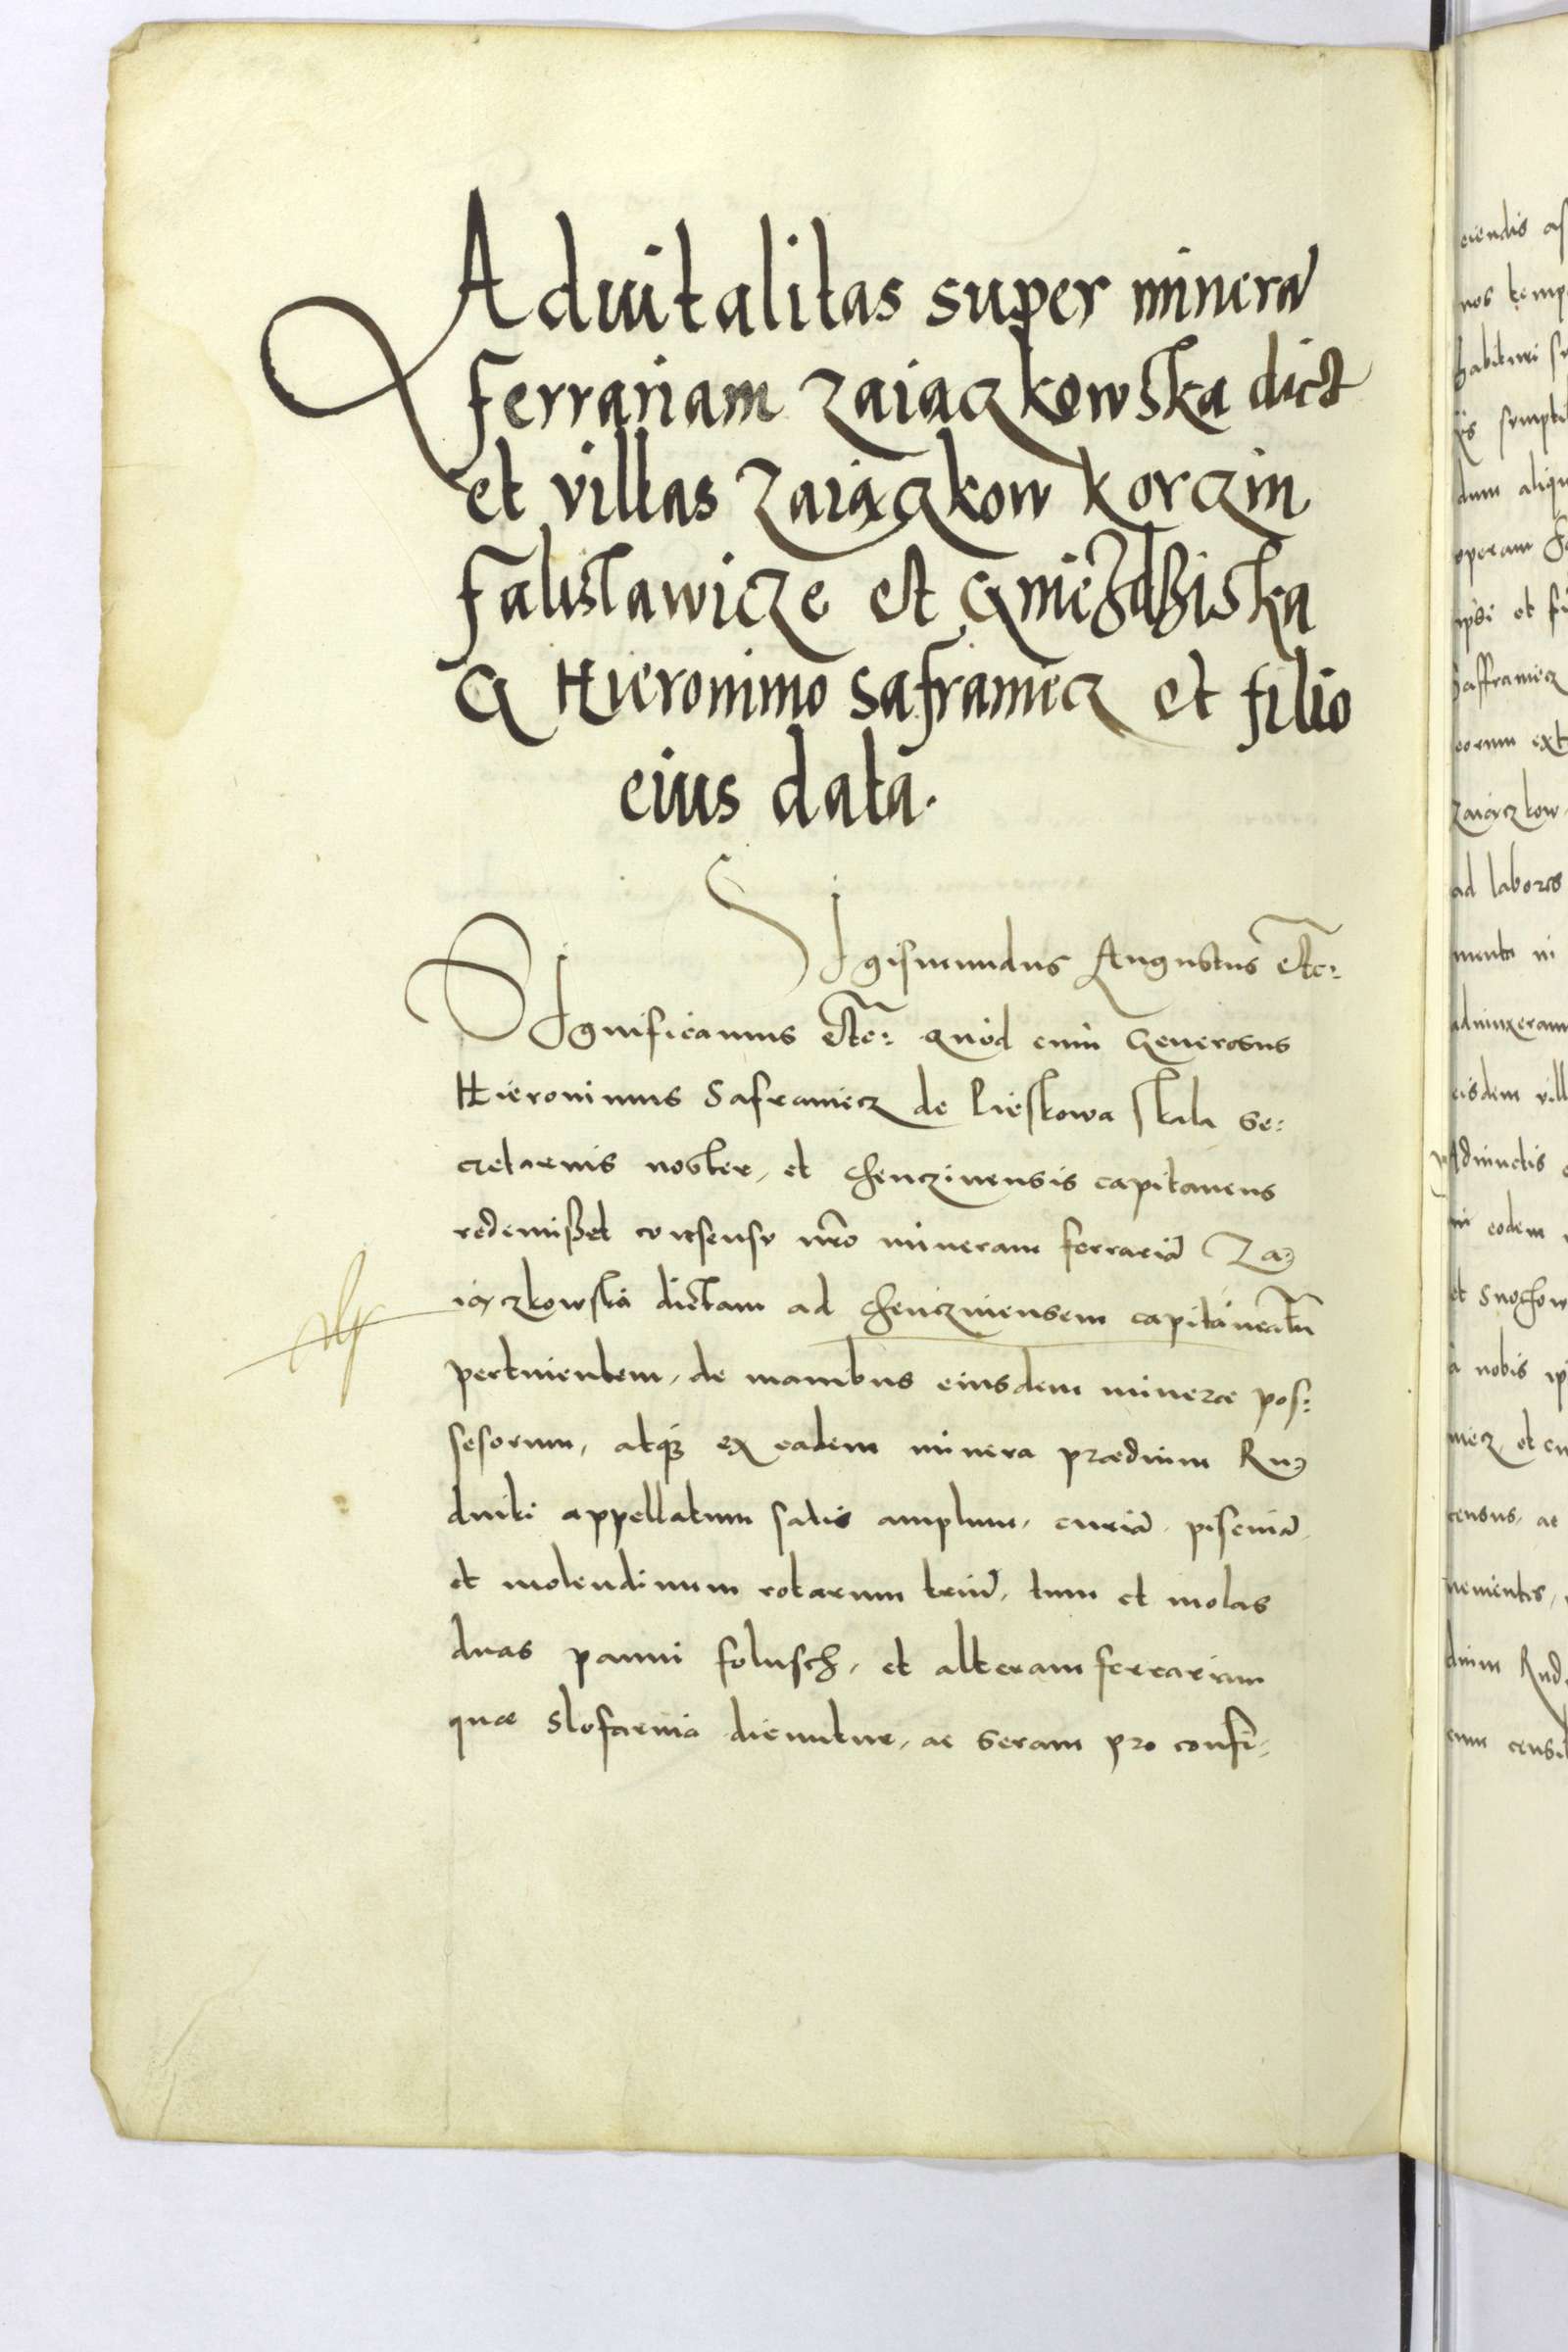 Aduitalitas super minerā
ferrariam Zaiączkowska dict
et villas Zaiączkow Korczin
falislawicze et Gniezdziska
G Hieronimo Safraniecz et filio
eius data.
Sigismundus Augustus etc:
Significamus etc: quod cum Generosus
Hieronimus Safraniecz de Pieskowa skala se:
cretarius noster, et chenczinensis capitaneus
redemisset consensu nr̄o mineram ferrariā Za-
iączkowska dictam ad chencziniensem capitaneatū
pertinentem, de manibus eiusdem mineræ pos:
sesorum, atq3 ex eadem minera prædium Ru-
dniki appellatum satis amplum, curiā, pisciniā
et molendinum rotarum triū, tum et molas
duas panni folusch, et alteram ferrarium
quæ slofarnia dicuntur, ac seram pro confi-
eiendis
nos
habituri
sumpti
dum
operam
ipsi et
Saffraniecz
eorum
Zaiączkow
ad labores
menta in
adiunxeram
eisdem
Adiunctis
in eodem
et Snochow
à nobis
niecz et
census, ac
dium Rud
cum